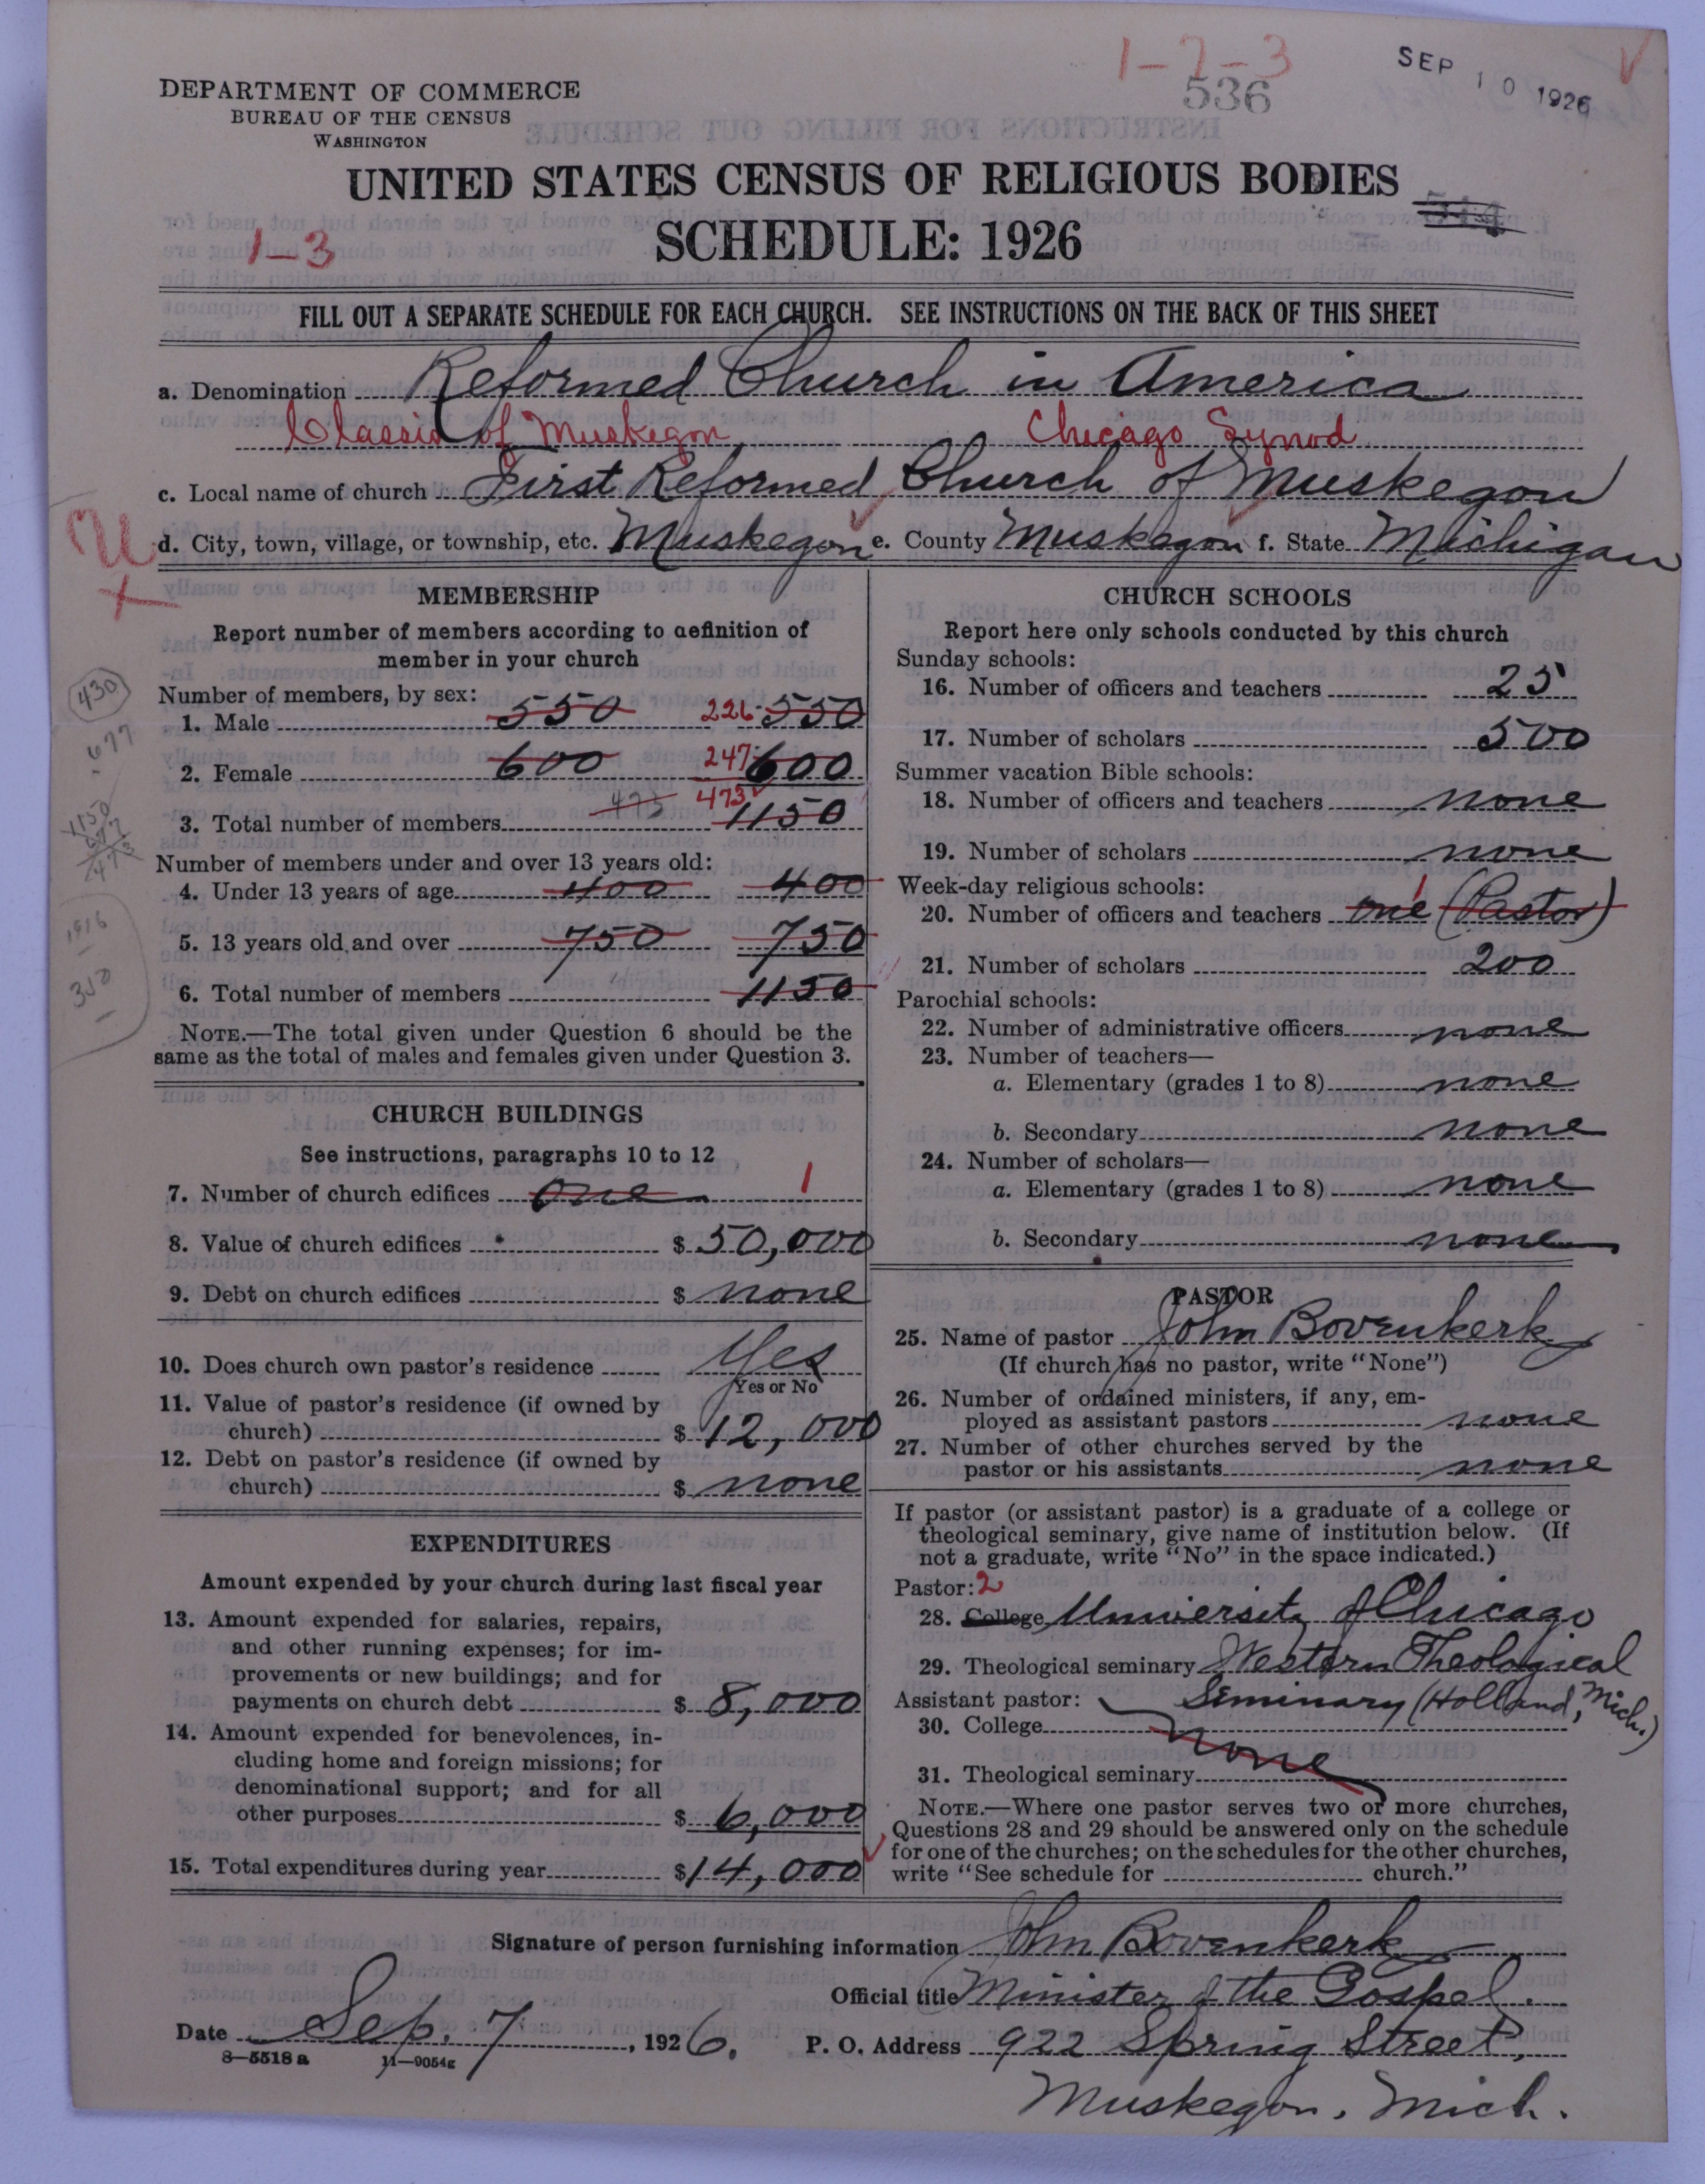 1-7-3
536
SEP 10 1926
DEPARTMENT OF COMMERCE
BUREAU OF THE CENSUS
WASHINGTON
UNITED STATES CENSUS OF RELIGIOUS BODIES
514
1-3
SCHEDULE: 1926
FILL OUT A SEPARATE SCHEDULE FOR EACH CHURCH. SEE INSTRUCTIONS ON THE BACK OF THIS SHEET
a. Denomination Reformed Church in America
Classis of Muskegon Chicago Synod
c. Local name of church First Reformed Church of Muskegon
d. City, town, village, or township, etc. Muskegon e. County Muskegon f. State Michigan
MEMBERSHIP
Report number of members according to definition of
member in your church
Number of members, by sex:
1. Male 550 226 550
2. Female 600 247 600
3. Total number of members 473 473 1150
Number of members under and over 13 years old:
4. Under 13 years of age 400 400
5. 13 years old and over 750 750
6. Total number of members 1150
NOTE.—The total given under Question 6 should be the
same as the total of males and females given under Question 3.
430
677
1150
677
473
1916
350
CHURCH BUILDINGS
See instructions, paragraphs 10 to 12
7. Number of church edifices one 1
8. Value of church edifices $ 50,000
9. Debt on church edifices $ none
10. Does church own pastor's residence Yes
Yes or No
11. Value of pastor's residence (if owned by
church) $ 12,000
12. Debt on pastor's residence (if owned by
church) $ none
EXPENDITURES
Amount expended by your church during last fiscal year
13. Amount expended for salaries, repairs,
and other running expenses; for im-
provements or new buildings; and for
payments on church debt $ 8,000
14. Amount expended for benevolences, in-
cluding home and foreign missions; for
denominational support; and for all
other purposes $ 6,000
15. Total expenditures during year $14,000
CHURCH SCHOOLS
Report here only schools conducted by this church
Sunday schools:
16. Number of officers and teachers 25
17. Number of scholars 500
Summer vacation Bible schools:
18. Number of officers and teachers none
19. Number of scholars none
Week-day religious schools:
20. Number of officers and teachers one 1 (Pastor)
21. Number of scholars 200
Parochial schools:
22. Number of administrative officers none
23. Number of teachers—
a. Elementary (grades 1 to 8) none
b. Secondary none
24. Number of scholars—
a. Elementary (grades 1 to 8) none
b. Secondary none
PASTOR
25. Name of pastor John Bovenkerk
(If church has no pastor, write "None")
26. Number of ordained ministers, if any, em-
ployed as assistant pastors none
27. Number of other churches served by the
pastor or his assistants none
If pastor (or assistant pastor) is a graduate of a college or
theological seminary, give name of institution below. (If
not a graduate, write "No" in the space indicated.)
Pastor: 2
28. College University of Chicago
29. Theological seminary Western Theological
Assistant pastor: Seminary (Holland, Mich.)
30. College
none
31. Theological seminary
NOTE.—Where one pastor serves two or more churches,
Questions 28 and 29 should be answered only on the schedule
for one of the churches; on the schedules for the other churches,
write "See schedule for church."
Signature of person furnishing information John Bovenkerk
Official title Minister of the Gospel.
Date Sep. 7, 1926. P. O. Address 922 Spring Street,
8-5518a 11-9054g
Muskegon, Mich.